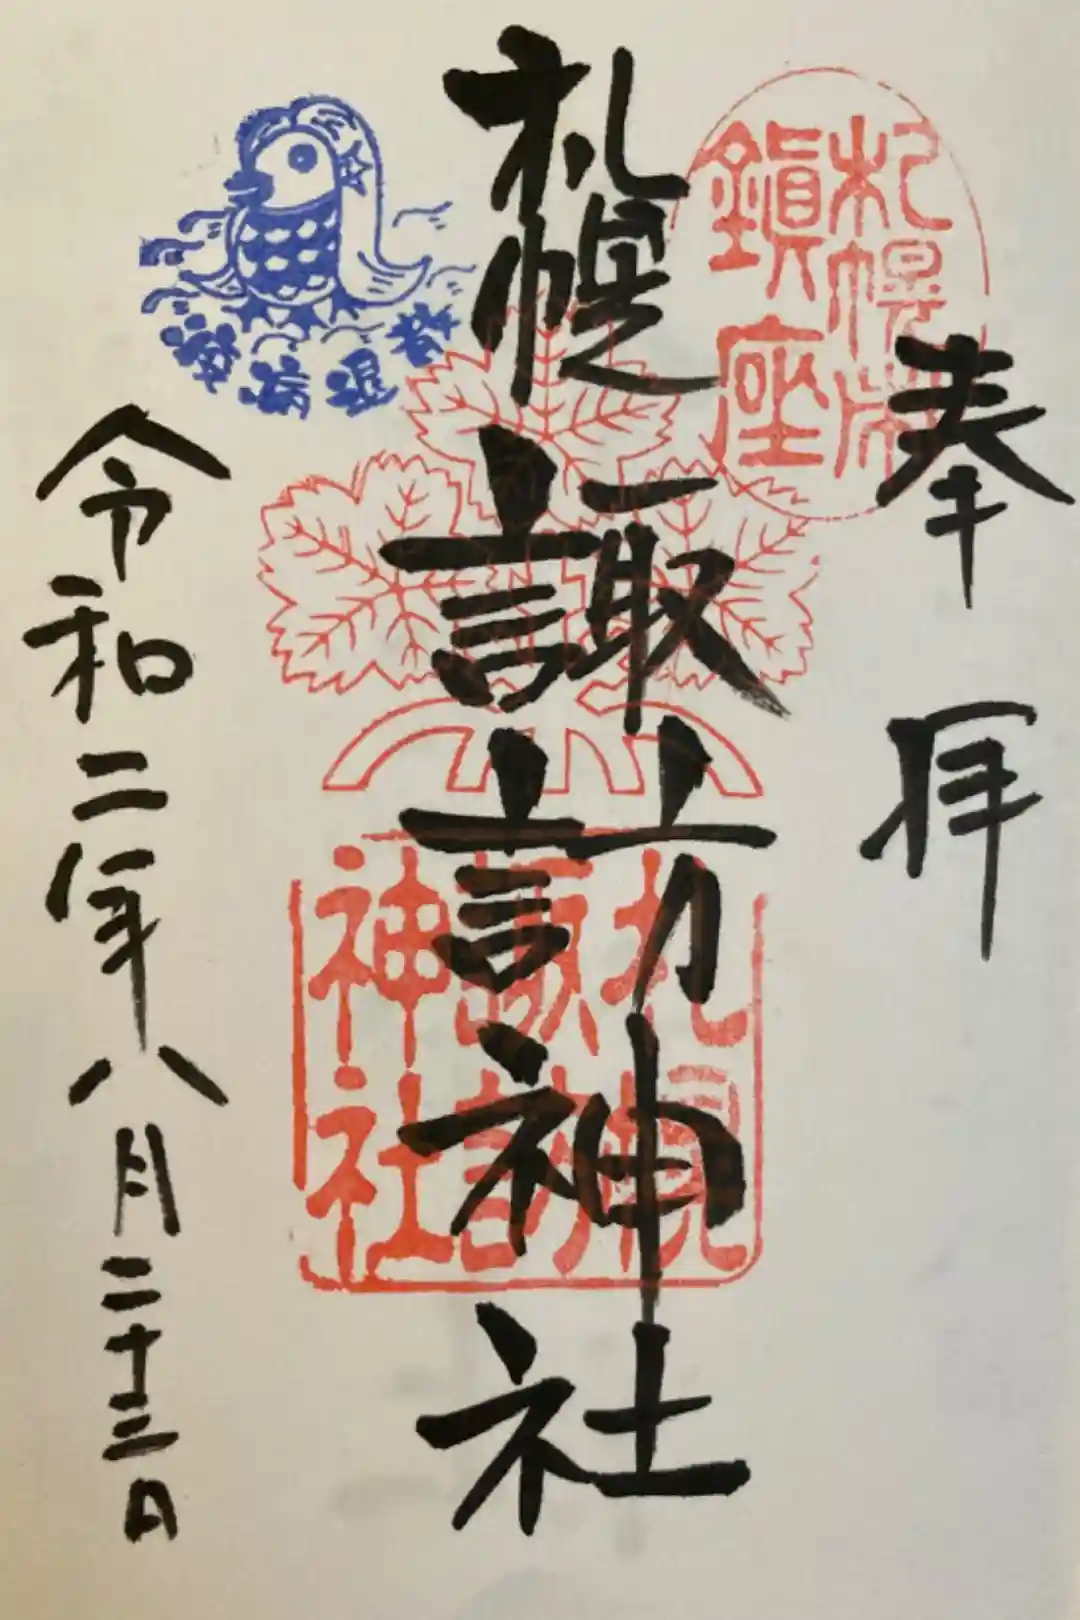 奉拝
札幌
鎮座
札幌諏訪神社
札幌
諏訪
神社
疫病退散
令和二年八月二十三日